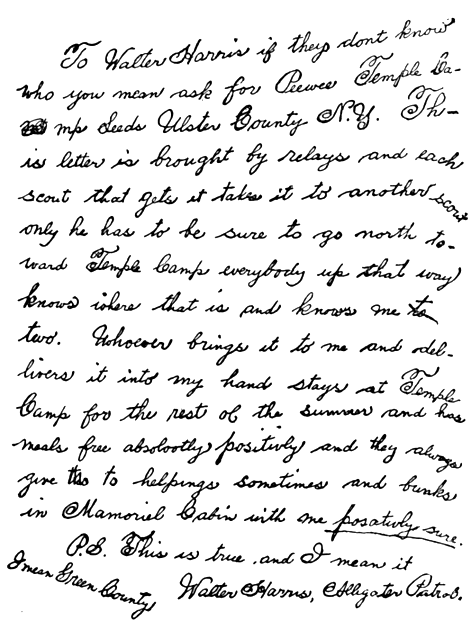 To Walter Harris if they dont know
who you mean ask for Peewee Temple Ca-
mp Leeds Ulster County N.Y. Th-
is letter is brought by relays and each
scout that gets it takes it to another scout
only he has to be sure to go north to-
ward Temple Camp everybody up that way
knows where that is and knows me to
two. Whoever brings it to me and del-
livers it into my hand stays at Temple
Camp for the rest of the summer and has
meals free absolootly positivly and they always
give to helpings sometimes and bunks
in Mamoriel Cabin with me posativly sure.
P.S. This is true and I mean it
I mean Green County
Walter Harris, Alligater Patrol.